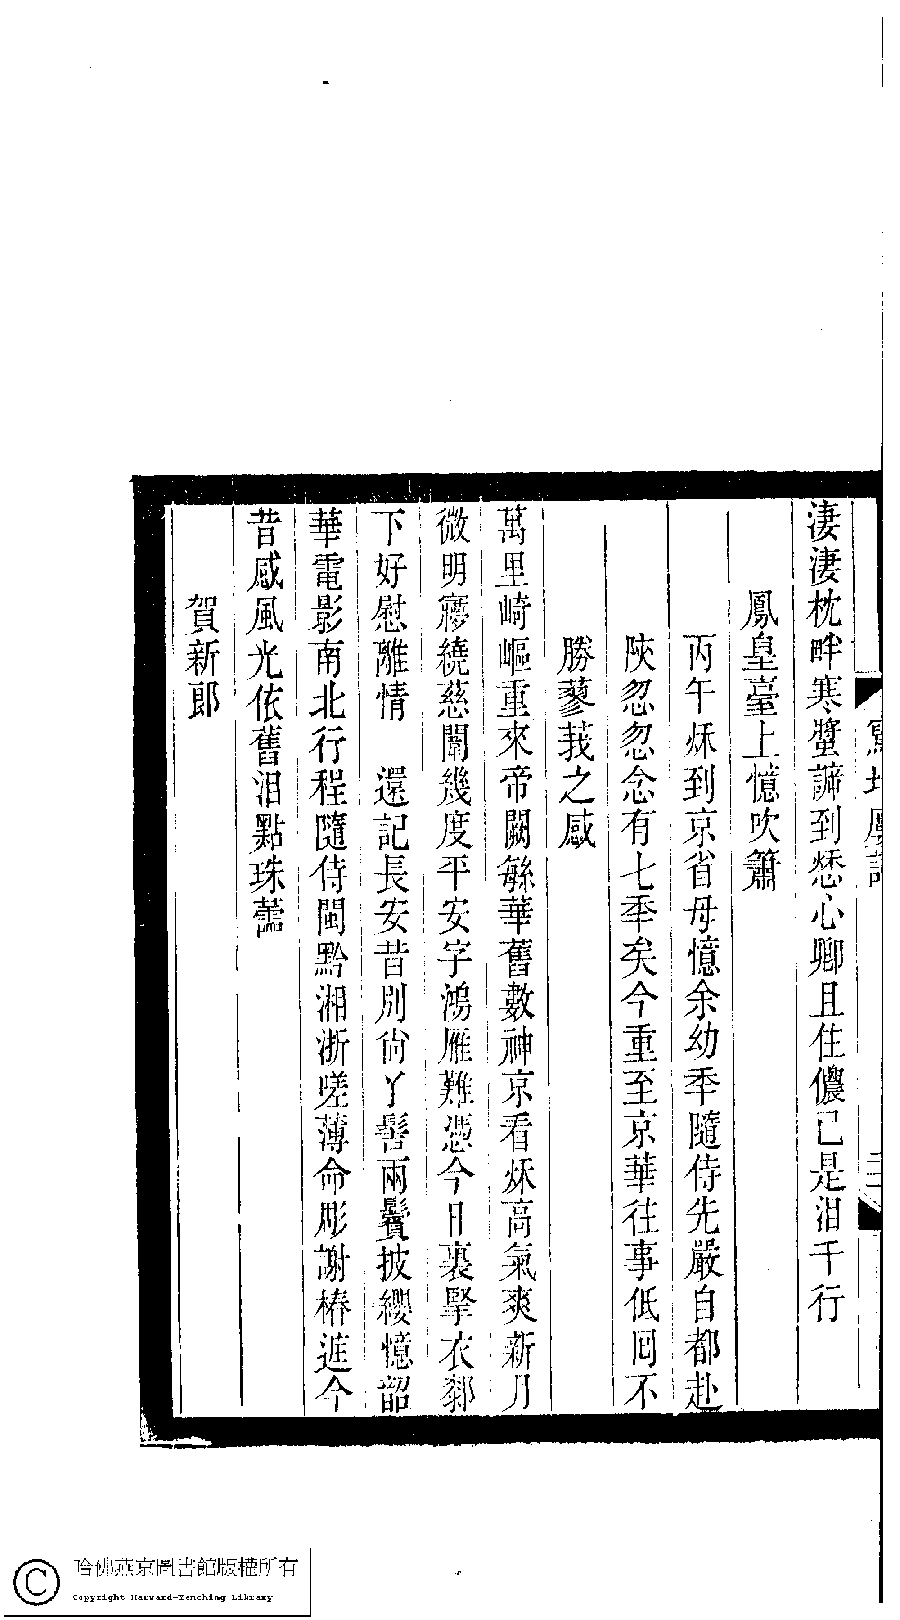 淒淒枕畔寒螿謕到愁心卿且住儂已是泪千行
鳳皇臺上憶吹簫
丙午秌到京省母憶余幼秊隨侍先嚴自都赴
陝忽忽念有七秊矣今重至京華往事低回不
勝蓼莪之感
萬里崎嶇重來帝闕緐華舊數神京看秌高氣爽新月
微明寢繞慈闈幾度平安字鴻雁難憑今日裏牽衣郄
下好慰離情　還記長安昔別尙丫髻兩鬢披纓憶韶
華電影南北行程隨侍閩黔湘浙嗟薄命彫謝椿遊今
昔感風光依舊泪點珠蘦
賀新郎
哈佛燕京圖書館版權所有
Copyright Harvard-Yenching Library